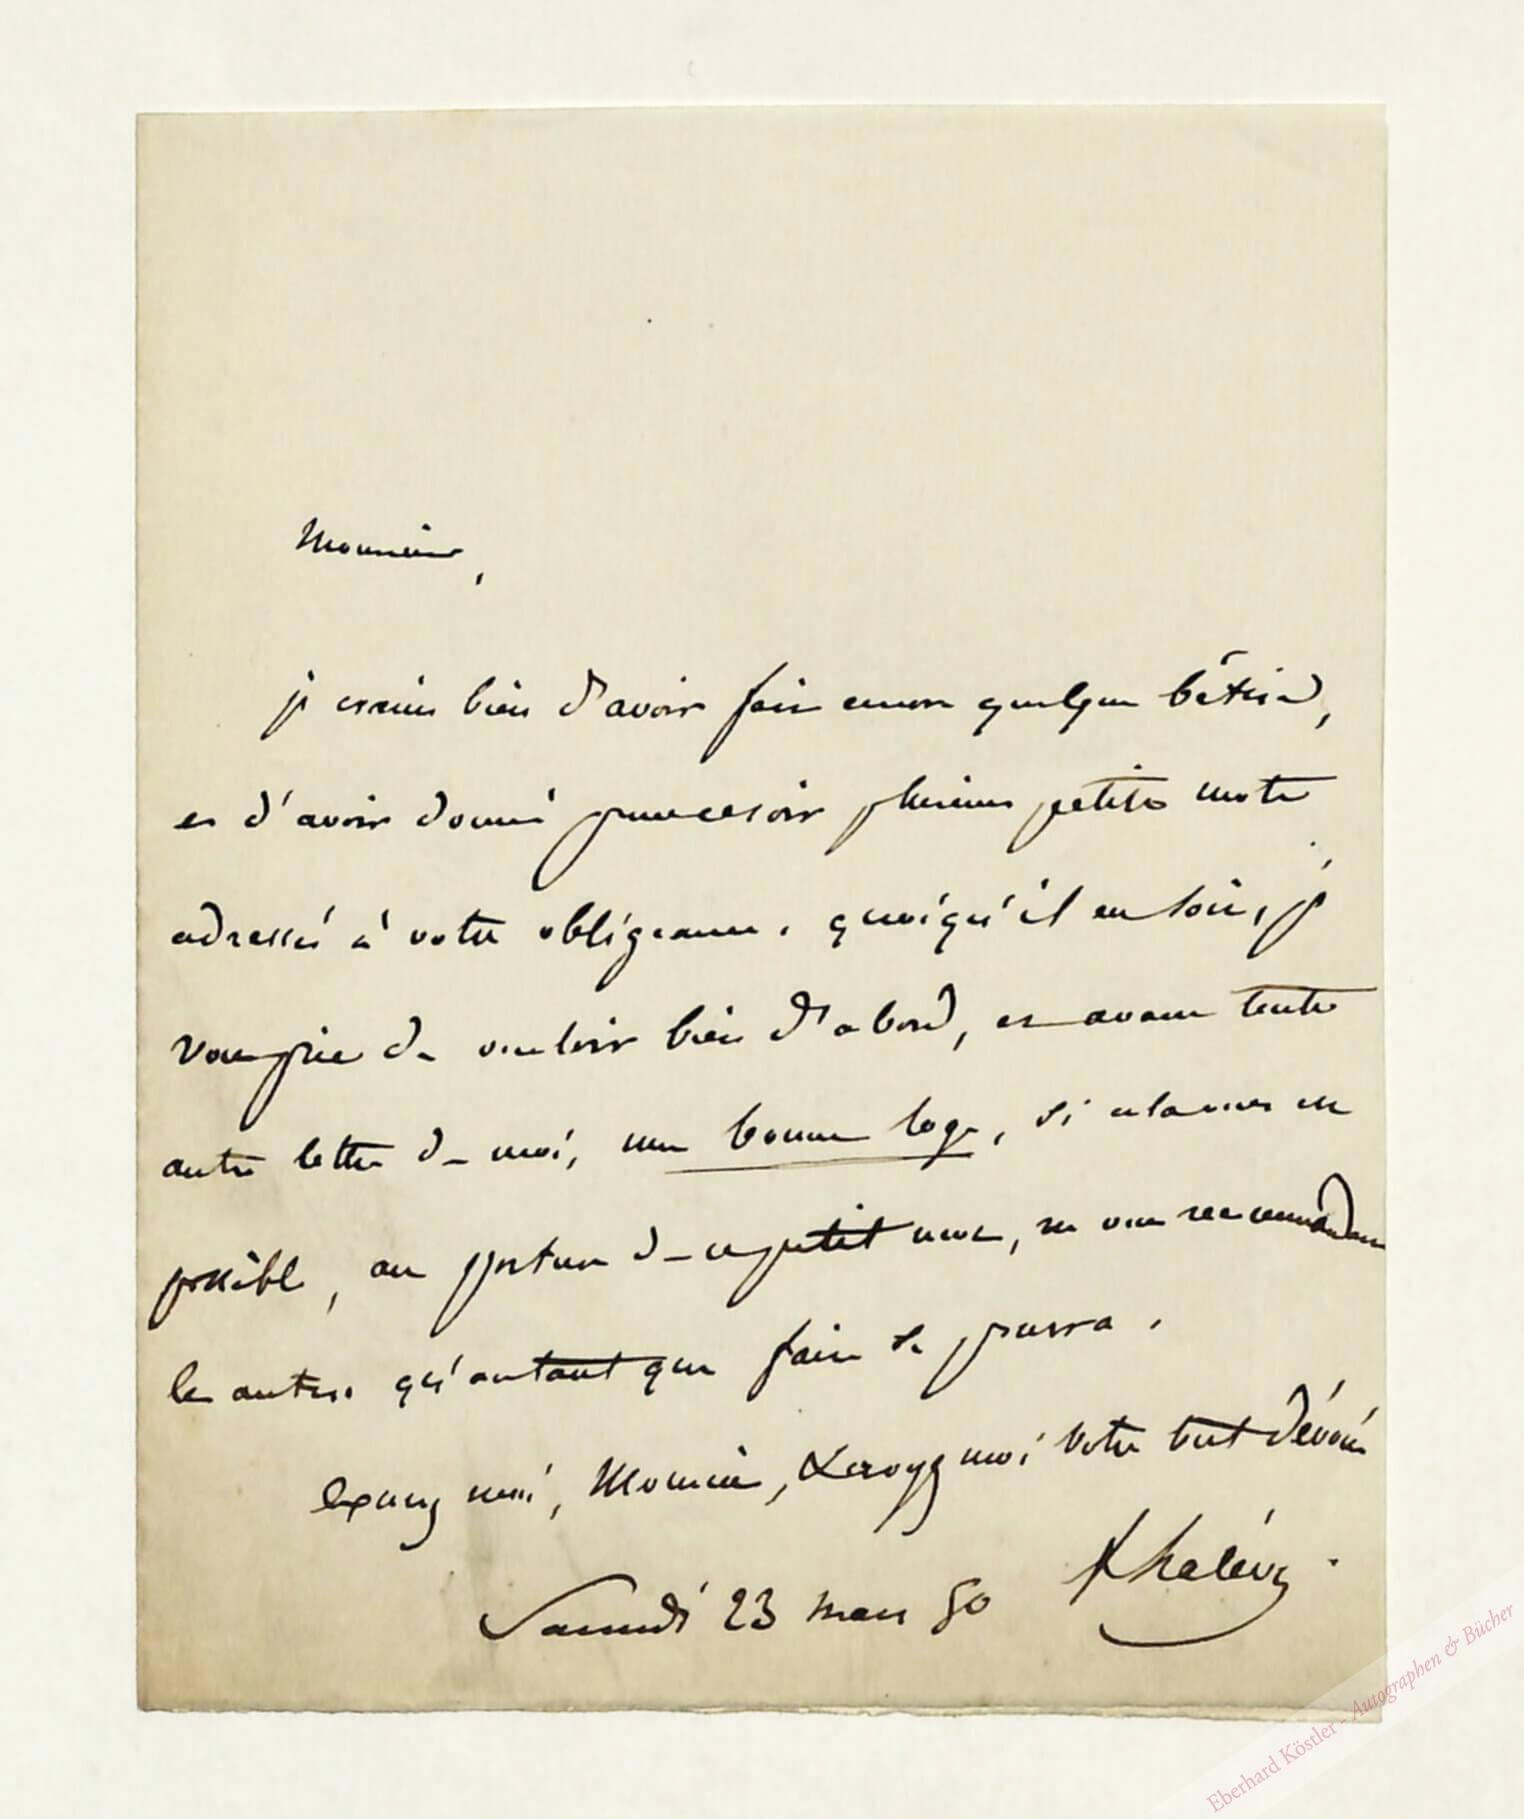 Monsieur,
je crains bien d'avoir fait encore quelque bêtise,
et d'avoir donné pour ce soir plusieurs petits mots
adressés à votre obligeance. quoiqu'il en soit, je
vous prie de vouloir bien d'abord, et avant toute
autre lettre de moi, une bonne loge, si cela vous est
possible, au porteur de ce petit mot, ne vous recommandant
les autres qu'autant que faire se pourra.
excusez moi, Monsieur, & croyez moi votre tout dévoué
FHalévy.
Samedi 23 mars 50
Eberhard Köstler - Autographen & Bücher